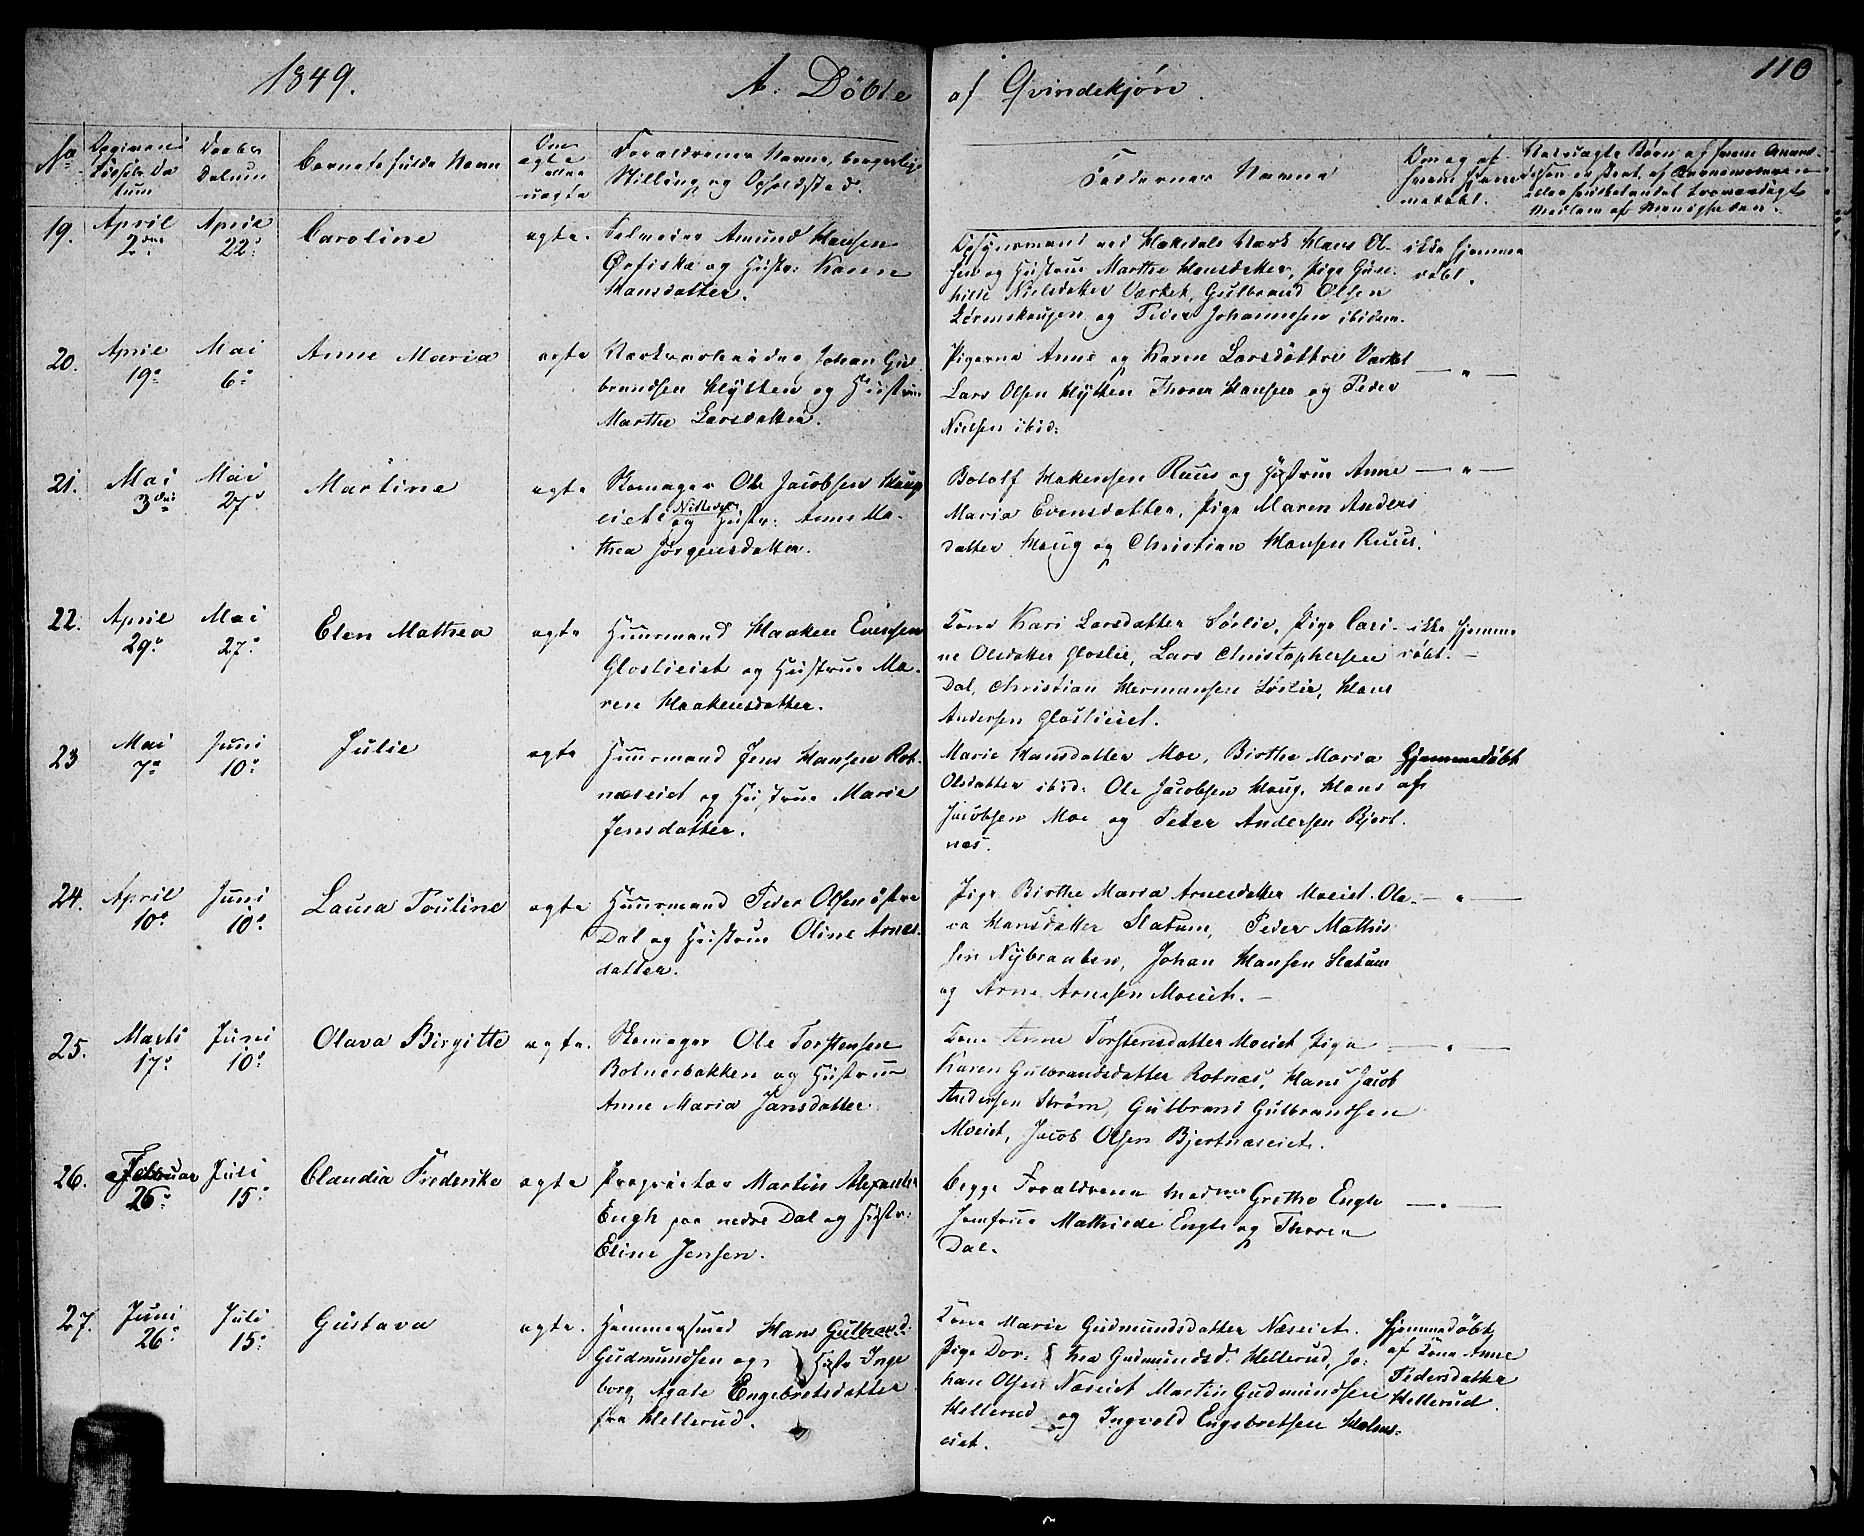 1849. A. Döbte af Qvindekjön. 110
No Opgiven Födsels Datum Daabs Datum Barnets fulde Navn Om ægte eller uægte Forældrenes Navne, borgerlige Stilling og Opholdsted. Faddernes Navne Om og af hvem hjemmedøbt.
19. April 2den April 22: Caroline ægte. Selveier Amund Hansen
Ørfiske og Hustr: Karen
Hansdatter.
Opsynsmand ved Hakedals Værk Hans Ol-
sen og Hustrue Marthe Hansdatter, Pige Gun-
hild Nielsdatter Værket, Gulbrand Olsen
og Peder Johannesen ibidem.
ikke hjemme
døbt.
20. April 19: Mai 6: Anne Maria ægte Værksarbeider Johan Gul
brandsen Hÿtten og Hustrue
Marthe Larsdatter.
Pigerne Anne og Karen Larsdöttre Værket
Lars Olsen Hÿtten Thorer Hansen og Peder
Nielsen ibid:
— " —
21. Mai 3die Mai 27: Martine ægte Skomager Ole Jacobsen Haug
eiet Nittedal og Hustr: Anne Ma-
thea Jørgensdatter.
Botolf Hakensen Ruus og Hustrue Anne
Maria Evensdatter, Pige Maren Anders
datter Haug og Christian Hansen Ruus.
— " —
22. April 29: Mai 27: Elen Mathea ægte Huusmand Haaken Evensen
Gloslieiet og Hustrue Ma-
ren Haakensdatter.
Kone Kari Larsdatter Sørlie, Pige Cari-
ne Olsdatter Gloslie, Lars Christophersen
Dal, Christian Hermansen Sørlie, Hans
Andersen Gloslieiet.
ikke hjemme
døbt. —
23 Mai 7: Juni 10: Julie ægte Huusmand Jens Hansen Rot-
næseiet og Hustrue Marie
Jensdatter.
Marie Hansdatter Moe, Birthe Maria
Olsdatter ibid: Ole Jacobsen Haug, Hans
Jacobsen Moe og Peter Andersen Bjert-
næs.
Hjemmedöbt
af
24. April 10: Juni 10: Laura Pouline ægte Huusmand Peder Olsen østre
Dal og Hustrue Oline Arnes-
datter.
Pige Birthe Maria Arnesdatter Moeiet. Ole-
va Hansdatter Slatum, Peder Mathis
sen Nÿbraaten, Johan Hansen Slatum
og Arne Arnesen Moeiet. —
— " —
25. Marts 17: Juni 10: Olava Birgitte ægte. Skomager Ole Torstensen
Bolnesbakken og Hustrue
Anne Maria Jansdatter
Kone Anne Torstensdatter Moeiet Pige
Karen Gulbrandsdatter Rotnæs, Hans Jacob
Andersen Strøm, Gulbrand Gulbrandsen
Moeiet, Jacob Olsen Bjertnæseiet.
— " —
26. Februar 26: Juli 15: Claudia Frederike ægte Proprietær Martin Alexander
Engh paa nedre Dal og Hustr:
Eline Jensen.
Begge Forældrene Madme Grethe Engh
Jomfrue Mathilde Engh og Thorer
Dal.
— " —
27. Juni 26: Juli 15: Gustava ægte. Hammersmed Hans Gulbrand.
Gudmundsen og Hustr Inge
borg Agate Engebretsdatter
fra Hellerud.
Kone Marie Gudmundsdatter Næseiet.
Pige Dor- thea Gudmundsd. Hellerud, Jo-
han Olsen Næseiet Martin Gudmundsen
Hellerud og Ingvald Engebretsen Holms-
eiet.
Hjemmedöbt
af Kone Anne
Pedersdatter
Hellerud.